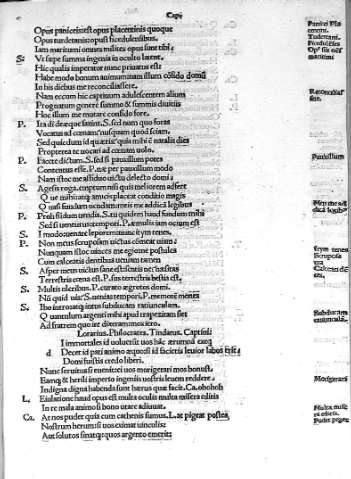 Capti
Opus paniceis: est opus placentinis quoque
Opus turdetanis: opus ficedulensibus.
Iam maritumi omnes milites opus sunt tibi.
S: Vt sępe summa ingenia in oculto latent,
Hic qualis imperator nunc priuatus est
Habe modo bonum animum: nam illum domi
In his diebus me reconciliassere.
Nam eccum hic captiuum adulescentem alium
Prognatum genere summo & summis diuitiis
Hoc illum me mutare confido fore.
P. Ita di deæque faxint. S. sed num quo foras
Vocatus ad cœnam? nusquam quod sciam.
Sed quid tu id quæris? quia mihi est natalis dies
Propterea te uocari ad cœnam uolo.
P. Facete dictum. S. sed si pauxillum potes
Contentus esse. P. næ per pauxillum modo
Nam istoc me assiduo uictu delecto domi.
S. Age sis roga. emptum nisi qui meliorem adfert
Quæ mihi atque amicis placeat conditio magis
Quasi fundum uendam meis me addicam legibus
P. Profundum uendis. S. tu quidem haud fundum mihi
Sed si uenturus temperi. P. uel iam ocium est
S. I modo uenare leporem: nunc irym tenes.
P. Non meus scruposam uictus commetat uiam.
Nunquam istoc uinces me egione postules
Cum calceatis dentibus ueniam tamen
S. Asper meus uictus sane est. sentis nec
Terrestris cœna est. P. sus terrestris bestia est.
S. Multis oleribus. P. curato ægrotos domi.
Nunquid uis? S. uenias temperi. P. memorem mones
S. Ibo intro atque intus subducam ratiunculam.
Quantulum argenti mihi apud trapezitam siet
Ad fratrem quo ire dixeram mox iero.
Lorarius. Philocrates. Tindarus. Captiui:
I immortales id uoluerunt uos hāc ærumnā exeq̄
d Decet id pati animo æquo: si id facietis leuior labos erit.
Domi fuistis credo liberi.
Nunc seruitus si euenit: ei uos morigerari mos bonust.
Eamque & herili imperio ingeniis uostris lenem reddere.
Indigna digna habenda sunt herus quæ facit. Ca. oh oh oh
L. Eiulatione haud opus est multa oculis multa miseria editis
In re mala animo si bono utare adiuuat.
Ca. At nos pudet quia cum cathenis sumus. L. at pigeat postea
Nostrum herum: si uos eximat uinculis:
Aut solutos sinat: quos argento emerit:
Panici Pla
centini.
Tudertani.
maritimi
Reconciliaf
sere.
Pauxillum
Irym tenes
Scruposa
uia
Subducam
ratiunculā.
Morigerari